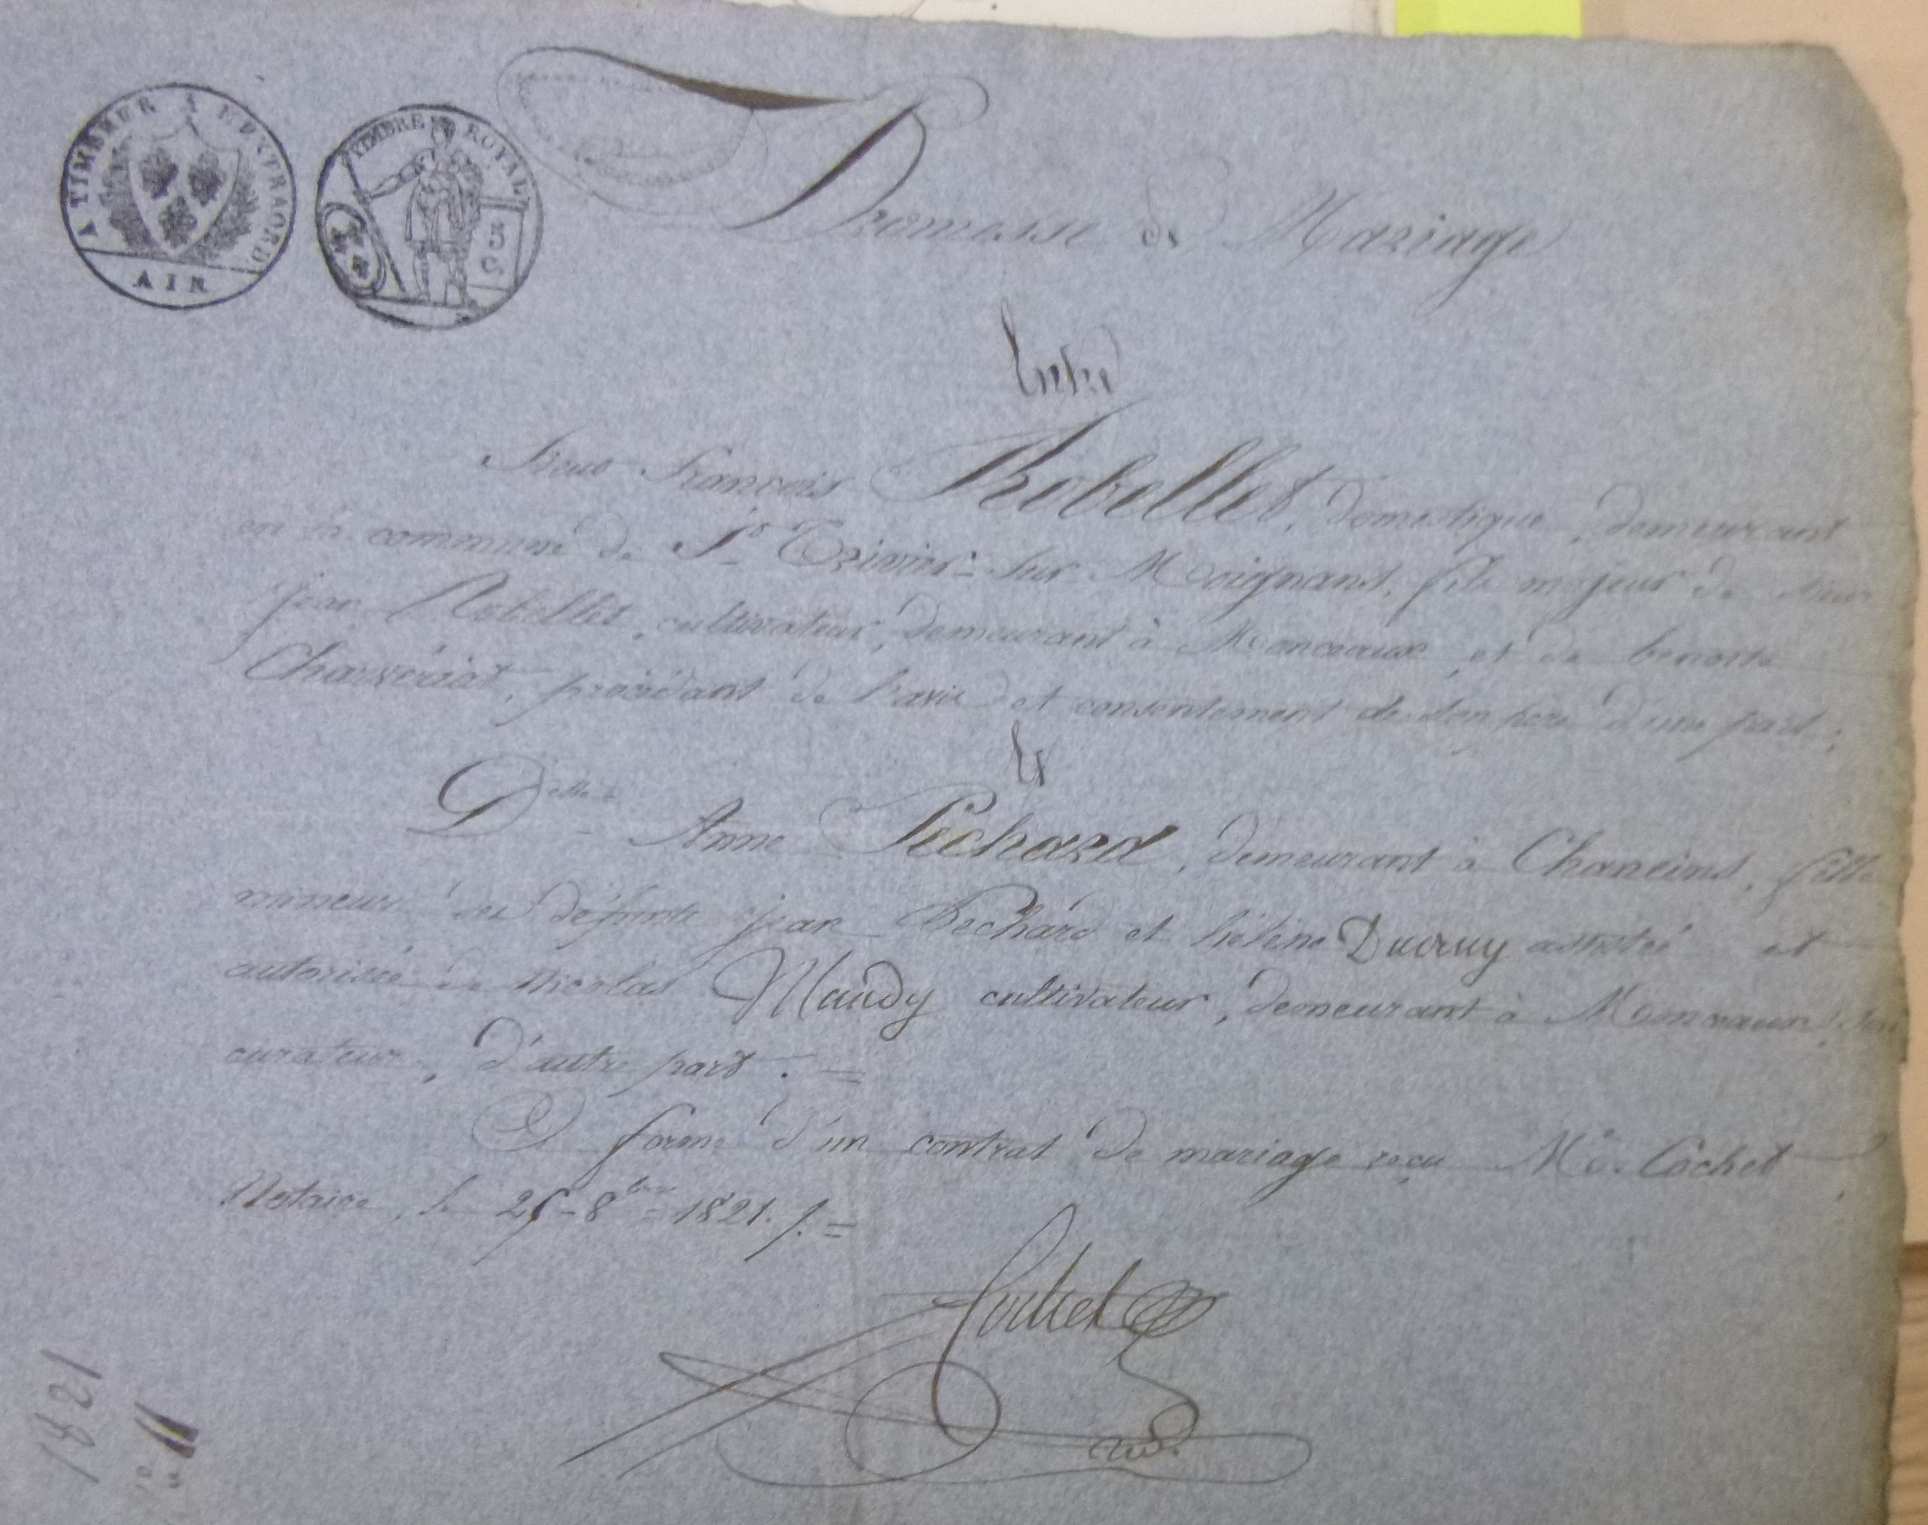 A TIMBRER A L'EXTRAORD.
AIN
TIMBRE ROYAL
35
Promesse de Mariage
Entre
Sieur François Robellet, domestique, demeurant
en la commune de St Trivier-sur-Moignans, fils majeur de sieur
jean Robellet, cultivateur, demeurant à Monceaux, et de benoite
procédant de l'avis et consentement de son père d'une part;
Et
Delle Anne Péchard, demeurant à Chaneins, fille
mineure de défunts jean Péchard et hélène Ducruy assistée et
autorisée de nicolas Maudy cultivateur, demeurant à Monceaux, son
curateur, d'autre part. =
forme d'un contrat de mariage reçu Me Cochet
Notaire, le 25 8bre 1821. =
Cochet
not.
1821